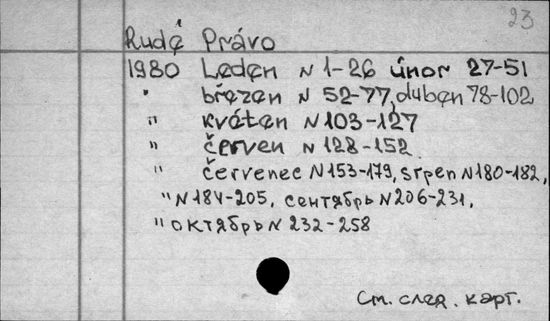 23
Rudé Právo
1980 Leden N 1-26 únor 27-51
" březen N 52-77, duben 78-102
" květen N 103-127
" červen N 128-152
" červenec N 153-179, srpen N 180-182,
" N 184-205, сентябрь N 206-231,
" октябрь N 232-258
См. след. карт.